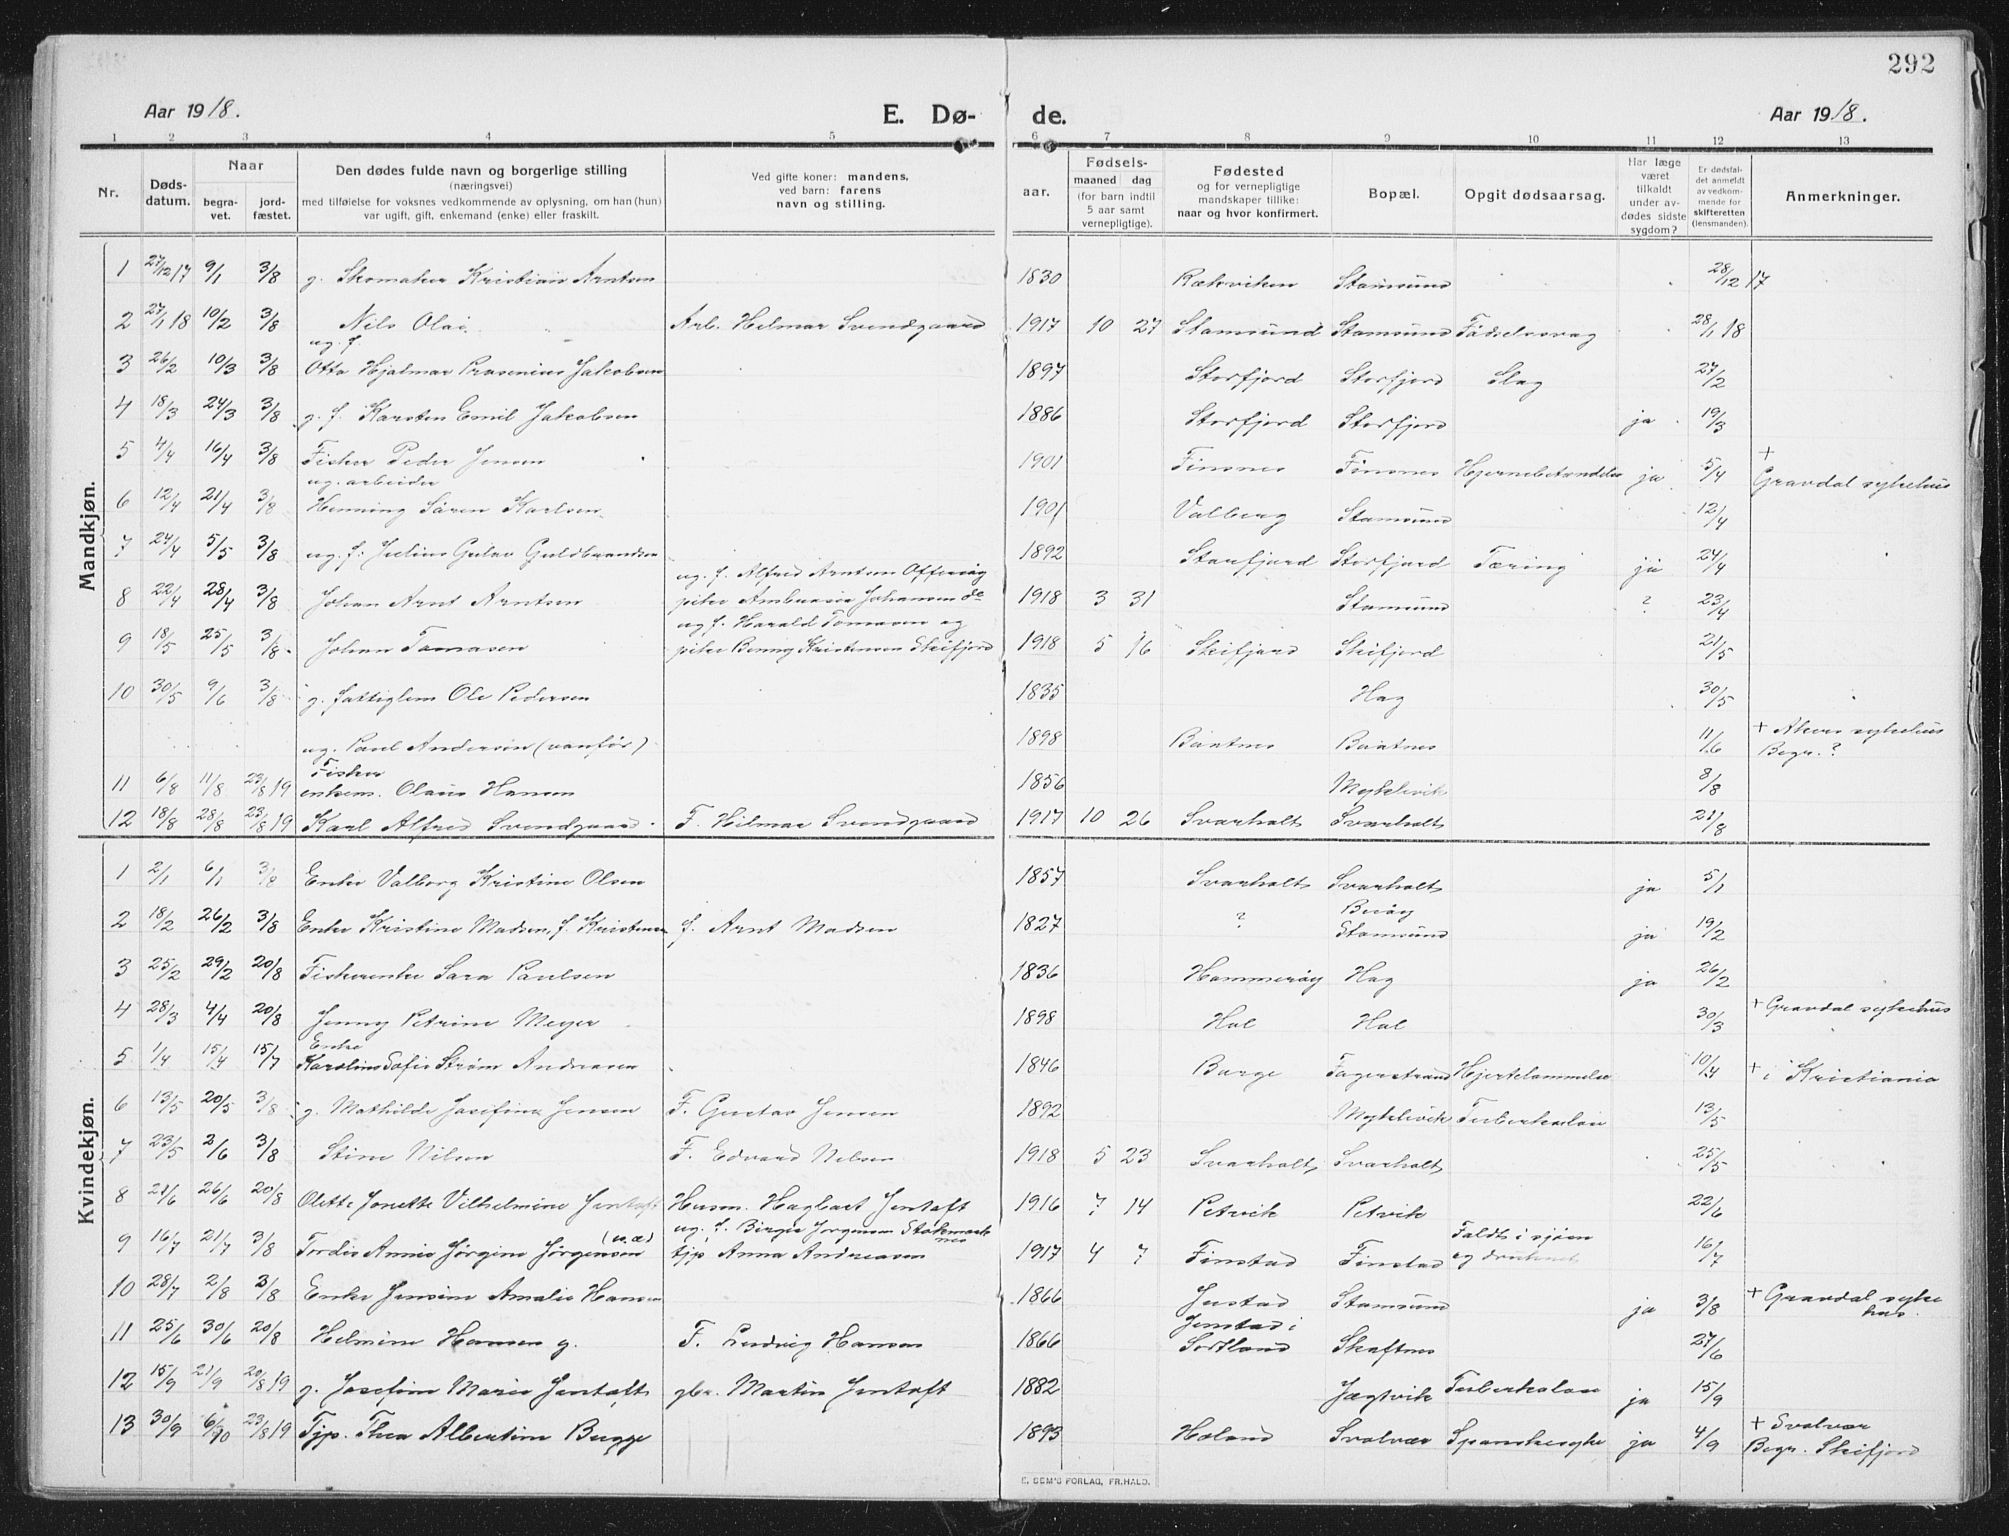 292
Aar 1918.
E. Dø-
de.
Aar 1918.
1 2 3 4 5 6 7 8 9 10 11 12 13
Nr.
Døds-
datum.
Naar
begra-
vet.
jord-
fæstet.
Den dødes fulde navn og borgerlige stilling
(næringsvei)
med tilføielse for voksnes vedkommende av oplysning, om han (hun)
var ugift, gift, enkemand (enke) eller fraskilt.
Ved gifte koner: mandens,
ved barn: farens
navn og stilling.
aar.
Fødsels-
maaned dag
(for barn indtil
5 aar samt
vernepligtige).
Fødested
og for vernepligtige
mandskaper tillike:
naar og hvor konfirmert.
Bopæl.
Opgit dødsaarsag.
Har læge
været
tilkaldt
under av-
dødes sidste
sygdom?
Er dødsfal-
det anmeldt
av vedkom-
mende for
skifteretten
(lensmanden).
Anmerkninger.
Mandkjøn.
1 27/12 17 9/1 3/8 g. Skomaker Kristian Arntsen 1830 Rækviken Stamsund 28/12 17
2 27/1 18 10/2 3/8 Nils Olai Arb. Hilmar Svendgaard 1917 10 27 Stamsund Stamsund Fødselssvag 28/1 18
ug. f.
3 26/2 10/3 3/8 Otto Hjalmar Jakobsen 1897 Storfjord Storfjord Slag 27/2
4 18/3 24/3 3/8 g. f. Karsten Emil Jakobsen 1886 Storfjord Storfjord ja 19/3
5 4/4 16/4 3/8 Fisker Peder Jensen 1901 Finsnes Finsnes Hjernebetændelse ja 5/4 + Gravdal sykehus
ug. arbeider
6 12/4 21/4 3/8 Henning Sören Karlsen 1901 Valberg Stamsund 12/4
7 24/4 5/5 3/8 ug. f. Julius Gulav Guldbrandsen 1892 Storfjord Storfjord Tæring ja 24/4
ug. f. Alfred Arntsen Offersøy
8 22/4 28/4 3/8 Johan Arnt Arntsen pike Johansen 1918 3 31 Stamsund ? 23/4
ug f. Harald Tomasen og
9 18/5 25/5 3/8 Johan Tomasen pike Benny Kristensen Skifjord 1918 5 16 Skifjord Skifjord 21/5
10 30/5 9/6 3/8 g. fattiglem Ole Pedersen 1835 Hag 30/5
ug. Paul Andersen (vanfør) 1898 Baatnes Baatnes 11/6 + Akers sykehus
Begr. ?
Fisker
11 6/8 11/8 23/8 19 enkem. Olaus Hansen 1856 Myklevik 8/8
12 18/8 28/8 23/8 19 Karl Alfred Svendgaard F. Hilmar Svendgaard 1917 10 26 Svarholt Svarholt 21/8
Kvindekjøn.
1 2/1 6/1 3/8 Enke Valborg Kristine Olsen 1857 Svarholt Svarholt ja 5/1
2 18/2 26/2 3/8 Enke Kristine Madsen, f. Kristensen f. Arnt Madsen 1827 ? Stamsund ja 19/2
3 25/2 29/2 20/8 Fiskerenke Sara Paulsen 1836 Hammerøy Hag ja 26/2
4 28/3 4/4 20/8 Jenny Petrine Meyer 1898 Hol Hol 30/3 + Gravdal sykehus
Enke
5 1/4 15/4 15/7 Karoline Sofie Strøm Andreasen 1846 Borge Fagerstrand Hjertelammelse 10/4 + i Kristiania
6 13/5 20/5 3/8 g. Mathilde Josefine Jensen F. Gustav Jensen 1892 Myklevik Tuberkulose 13/5
7 23/5 2/6 3/8 Stine Nilsen F. Edvard Nilsen 1918 5 23 Svarholt Svarholt 25/5
8 21/6 26/6 20/8 Olette Jonette Vilhelmine Jentoft Husm. Hagbart Jentoft 1916 7 14 Petvik Petvik 22/6
(u.æ) ug. f. Birger Jørgensen Stokmarknes
9 16/7 21/7 3/8 Tordis Annie Jørgine Jørgensen tjp Anna Andreasen 1917 4 7 Finstad Finstad Faldt i sjøen
og druknet 16/7
10 28/7 2/8 3/8 Enke Jensine Amalie Hansen 1866 Justad Stamsund ja 3/8 + Gravdal syke
hus.
11 25/6 30/6 20/8 Helmine Hansen g. F. Ludvig Hansen 1866 Jenstad i
Sortland Skaftnes 27/6
12 15/9 21/9 20/8 19 g. Josefine Marie Jentoft gbr. Martin Jentoft 1882 Jægtvik Tuberkulose ja 15/9
13 30/9 6/10 23/8 19 Tjp. Thea Albertine Bugge 1893 Høland Svolvær Spanskesyke ja 4/9 + Svolvær
Begr. Skifjord
E. SEM'S FORLAG, FR.HALD.